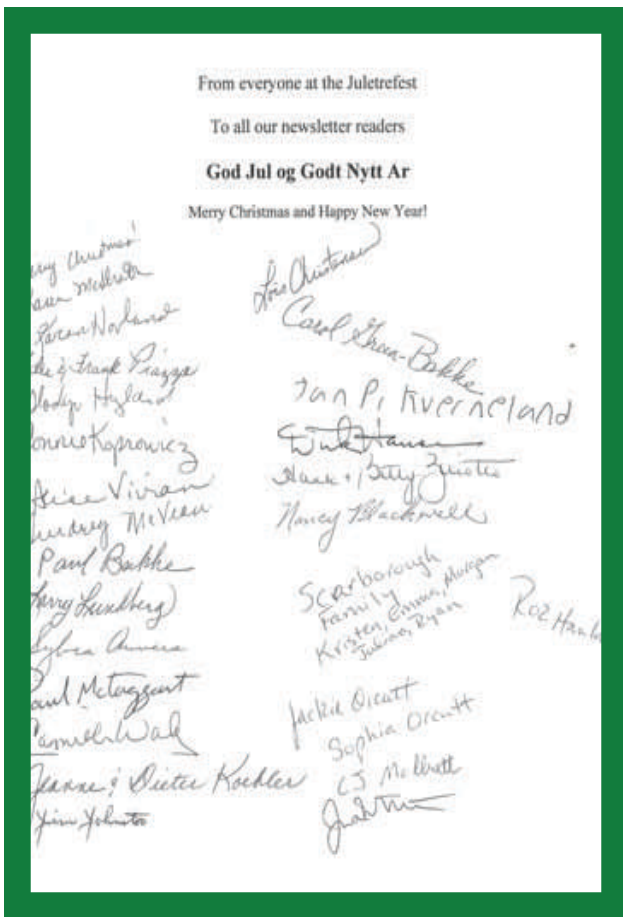 From everyone at the Juletrefest
To all our newsletter readers
God Jul og Godt Nytt Ar
Merry Christmas and Happy New Year!
Christmas!
Karen Norland
& Frank Piazza
Hyland
Koprowicz
Vivian
McVean
Paul Bakke
Larry Lundberg
Sylvia
Paul McTaggart
Jeanne & Dieter Koehler
Jim Johnston
Lois Christensen
Carol Green-Bakke
Jan P. Kverneland
Hansen
Hank & Betty
Nancy Blackwell
Scarborough
Family
Kristen, Emma, Morgan
Julian, Ryan
Roz
Jackie Orcutt
Sophia Orcutt
CJ McIlrath